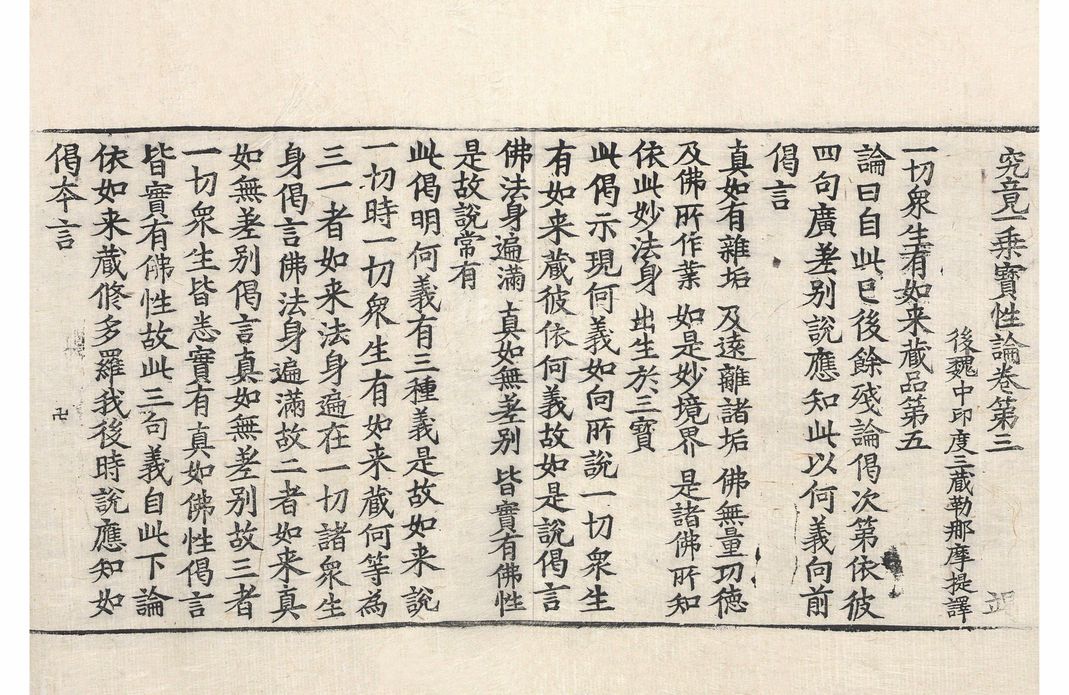 究竟一乗寶性論卷第三
後魏中印度三藏勒那摩提譯
一切衆生有如来藏品第五
論曰自此已後餘殘論偈次第依彼
四句廣差别說應知此以何義向前
偈言
真如有雜垢 及遠離諸垢 佛無量功徳
及佛所作業 如是妙境界 是諸佛所知
依此妙法身 出生於三寶
此偈示現何義如向所說一切衆生
有如来藏彼依何義故如是說偈言
佛法身遍滿 真如無差别 皆實有佛性
是故說常有
此偈明何義有三種義是故如来說
一切時一切衆生有如来藏何等為
三一者如来法身遍在一切諸衆生
身偈言佛法身遍滿故二者如来真
如無差别偈言真如無差别故三者
一切衆生皆悉實有真如佛性偈言
皆實有佛性故此三句義自此下論
依如来藏修多羅我後時說應知如
偈本言
卍